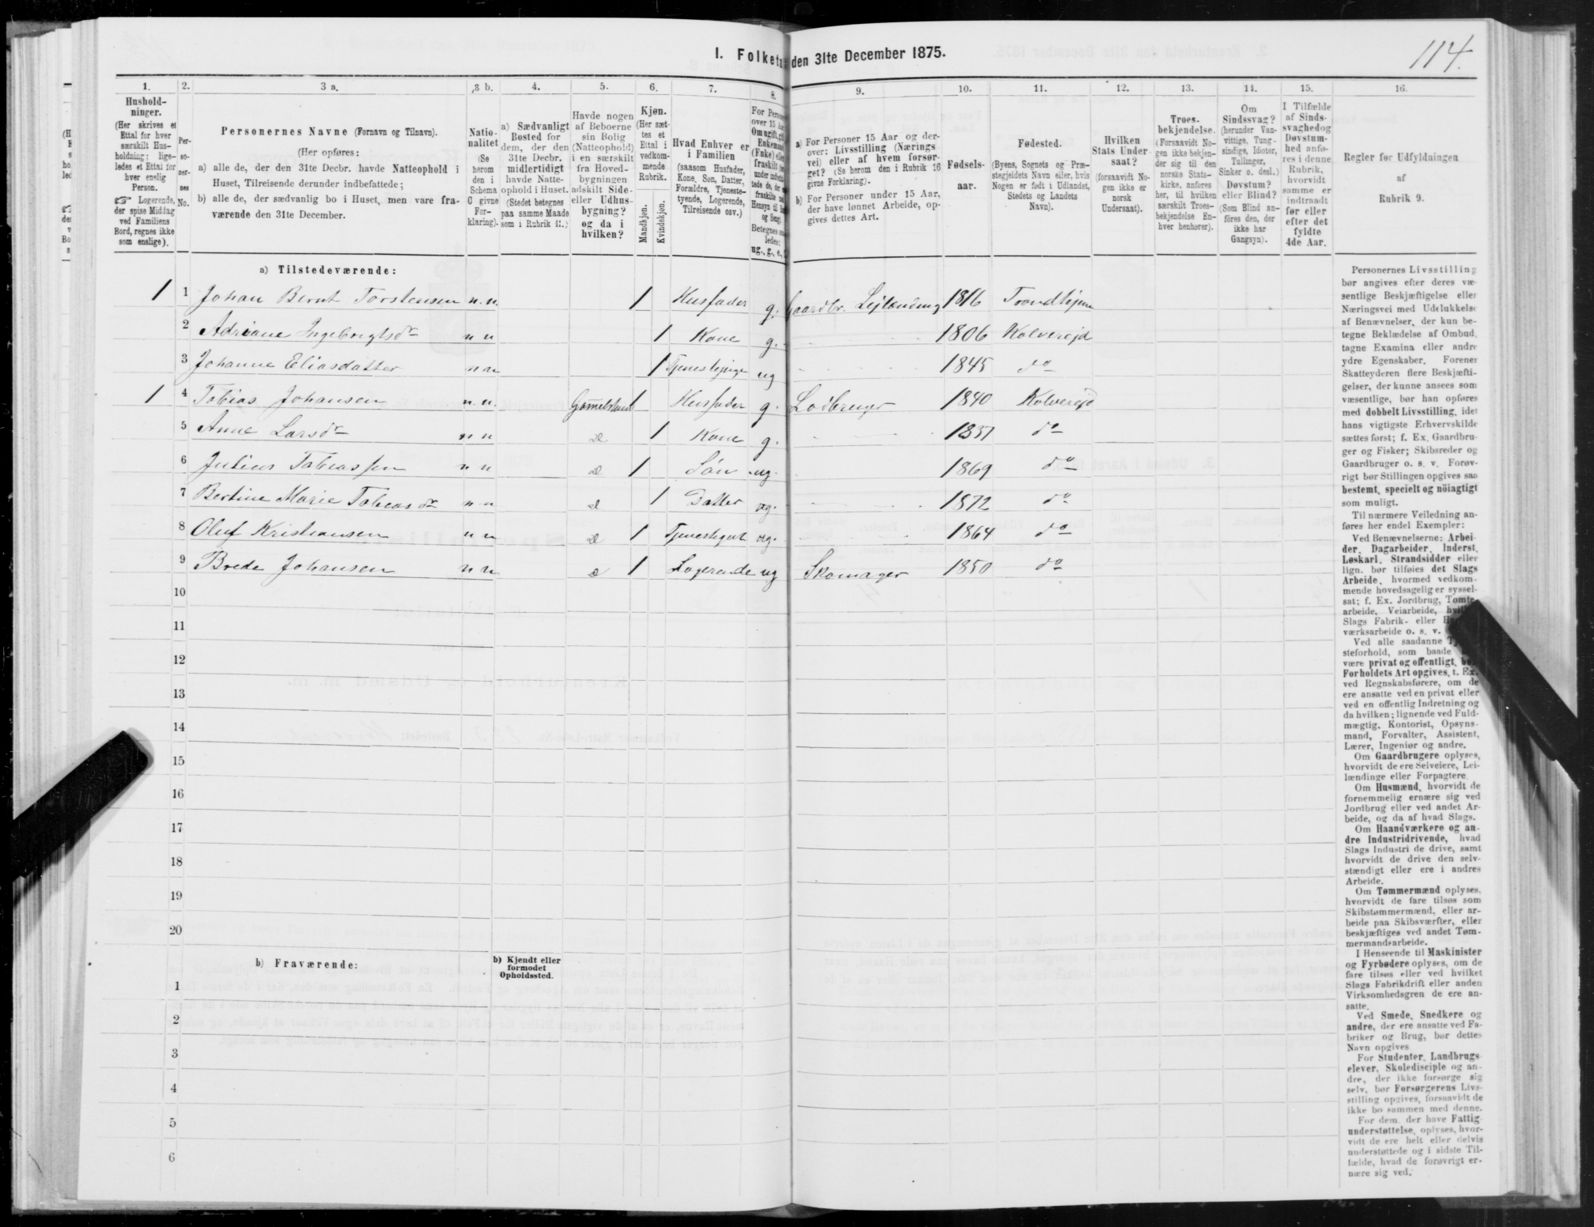 114.
I. Folketal den 31te December 1875.
1. 2. 3 a. 3 b. 4. 5. 6. 7. 8. 9. 10. 11. 12. 13. 14. 15. 16.
Hushold-
ninger.
(Her skrives et
Ettal for hver
særskilt Hus-
holdning; lige-
ledes et Ettal for
hver enslig
Person.
☞ Logerende,
der spise Middag
ved Familiens
Bord, regnes ikke
som enslige).
Per-
so-
ner-
nes
No.
Personernes Navne (Fornavn og Tilnavn).
(Her opføres:
a) alle de, der den 31te Decbr. havde Natteophold i
Huset, Tilreisende derunder indbefattede;
b) alle de, der sædvanlig bo i Huset, men vare fra-
værende den 31te December.
Natio-
nalitet
(Se
herom
den i
Schema
0 givne
For-
klaring).
a) Sædvanligt
Bosted for
dem, der den
31te Decbr.
midlertidigt
havde Natte-
ophold i Huset.
(Stedet betegnes
paa samme Maade
som i Rubrik 11.)
Havde nogen
af Beboerne
sin Bolig
(Natteophold)
i en særskilt
fra Hoved-
bygningen
adskilt Side-
eller Udhus-
bygning?
og da i
hvilken?
Kjøn.
(Her sæt-
tes et
Ettal i
vedkom-
mende
Rubrik.
Mandkjøn.
Kvindekjøn.
Hvad Enhver er
i Familien
(saasom Husfader,
Kone, Søn, Datter,
Forældre, Tjeneste-
tyende, Logerende,
Tilreisende osv.)
a) For Personer 15 Aar og der-
over: Livsstilling (Nærings
vei) eller af hvem forsør-
get? (Se herom den i Rubrik 16
givne Forklaring).
b) For Personer under 15 Aar,
der have lønnet Arbeide, op-
gives dettes Art.
Fødsels-
aar.
Fødested.
(Byens, Sognets og Præ-
stegjeldets Navn eller, hvis
Nogen er født i Udlandet,
Stedets og Landets
Navn).
Hvilken
Stats Under
saat?
(forsaavidt No-
gen ikke er
norsk
Undersaat).
Troes-
bekjendelse.
(Forsaavidt No-
gen ikke bekjen-
der sig til den
norske Stats-
kirke, anføres
her, til hvilken
særskilt Troes-
bekjendelse En-
hver henhører).
Om
Sindssvag?
(herunder Van-
vittige, Tung-
sindige, Idioter,
Tullinger,
Sinker o. desl.)
Døvstum?
eller Blind?
(Som Blind an-
føres den, der
ikke har
Gangsyn).
I Tilfælde
af Sinds-
svaghedog
Døvstum-
hed anfø-
res i denne
Rubrik,
hvorvidt
samme er
indtraadt
før eller
efter det
fyldte
4de Aar.
Regler før Udfyldningen
af
Rubrik 9.
a) Tilstedeværende:
1 1 Johan Bernt Torstensen n.n. 1 Husfader g. Gaardbr. Lejlænding 1816 Trondhjem
2 Adriane Ingebrigtsdr n n 1 Kone g. 1806 Kolvereid
3 Johanne Eliasdatter n n 1 Tjenestepige ug 1845 do
1 4 Tobias Johansen n.n. 1 Husfader g. 1840 Kolvereid
5 Anne Larsdr n n 1 Kone g. 1851 do
6 Julius Tobiassen n n 1 Søn ug. 1869 do
7 Bertine Marie Tobiasdr n n 1 Datter ug. 1872 do
8 Oluf Kristiansen n n 1 Tjenestegut ug. 1864 do
9 Brede Johansen n n 1 Logerende ug Skomager 1850 do
10
11
12
13
14
15
16
17
18
19
20
b) Fraværende: b) Kjendt eller
formodet
Opholdssted.
1
2
3
4
5
6
Personernes Livsstilling
bør angives efter deres væ-
sentlige Beskjæftigelse eller
Næringsvei med Udelukkelse
af Benævnelser, der kun be-
tegne Beklædelse af Ombud,
tagne Examina eller andre
ydre Egenskaber. Forener
Skatteyderen flere Beskjæfti-
gelser, der kunne ansees som
væsentlige, bør han opføres
med dobbelt Livsstilling, idet
hans vigtigste Erhvervskilde
sættes først; f. Ex. Gaardbru-
ger og Fisker; Skibsreder og
Gaardbruger o. s. v. Forøv-
rigt bør Stillingen opgives saa
bestemt, specielt og nöiagtigt
som muligt.
Til nærmere Veiledning an-
føres her endel Exempler:
Ved Benævnelserne: Arbei-
der, Dagarbeider, Inderst,
Løskarl, Strandsidder eller
lign. bør tilføies det Slags
Arbeide, hvormed vedkom-
mende hovedsagelig er syssel-
sat; f. Ex. Jordbrug, Tomte-
arbeide, Veiarbeide,
Slags Fabrik- eller
værksarbeide o. s. v.
Ved alle saadanne
steforhold, som baade
være privat og offentligt,
Forholdets Art opgives, t. Ex.
ved Regnskabsførere, om de
ere ansatte ved en privat eller
ved en offentlig Indretning og
da hvilken; lignende ved Fuld-
mægtig, Kontorist, Opsyns-
mand, Forvalter, Assistent,
Lærer, Ingeniør og andre.
Om Gaardbrugere oplyses,
hvorvidt de ere Selveiere, Lei-
lændinge eller Forpagtere.
Om Husmænd, hvorvidt de
fornemmelig ernære sig ved
Jordbrug eller ved andet Ar-
beide, og da af hvad Slags.
Om Haandværkere og an-
dre Industridrivende, hvad
Slags Industri de drive, samt
hvorvidt de drive den selv-
stændigt eller ere i andres
Arbeide.
Om Tømmermænd oplyses,
hvorvidt de fare tilsøs som
Skibstømmermænd, eller ar-
beide paa Skibsværfter, eller
beskjæftiges ved andet Tøm-
mermandsarbeide.
I Henseende til Maskinister
og Fyrbødere oplyses, om de
fare tilsøs eller ved hvilket
Slags Fabrikdrift eller anden
Virksomhedsgren de ere an-
satte.
Ved Smede, Snedkere og
andre, der ere ansatte ved Fa-
briker og Brug, bør dettes
Navn opgives
For Studenter, Landbrugs-
elever, Skoledisciple og an-
dre, der ikke forsørge sig
selv, bør Forsørgerens Livs-
stilling opgives, forsaavidt de
ikke bo sammen med denne.
For dem, der have Fattig-
understøttelse, oplyses, hvor-
vidt de ere helt eller delvis
understøttede og i sidste Til-
fælde, hvad de forøvrigt er-
nære sig ved.